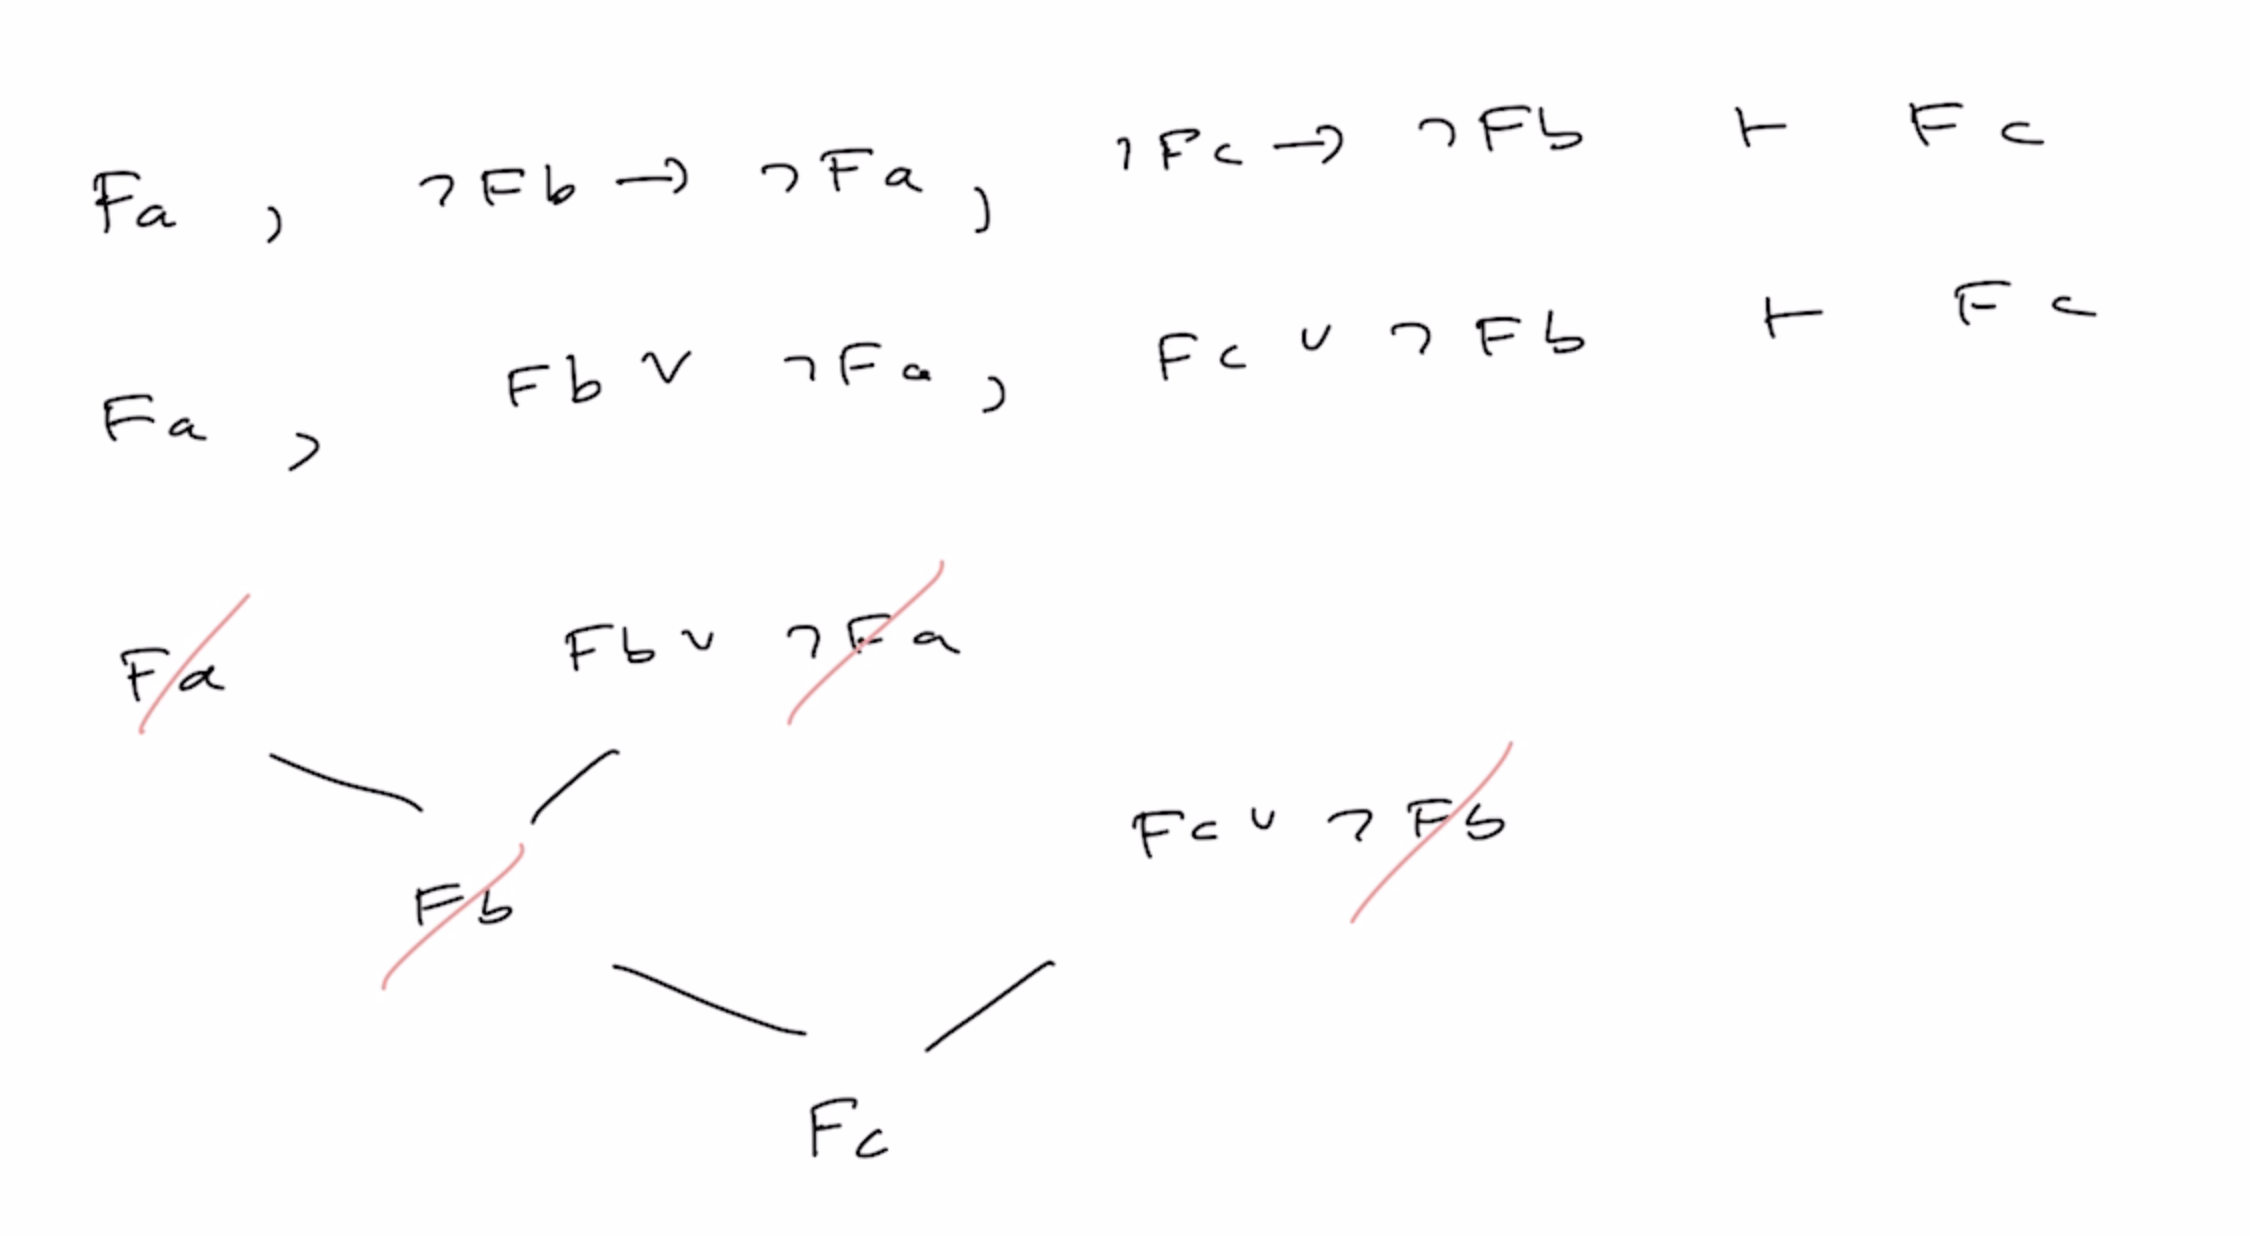 Fa , ¬Fb → ¬Fa , ¬Fc → ¬Fb ⊢ Fc
Fa , Fb ∨ ¬Fa , Fc ∨ ¬Fb ⊢ Fc
Fa Fb ∨ ¬Fa
Fb Fc ∨ ¬Fb
Fc